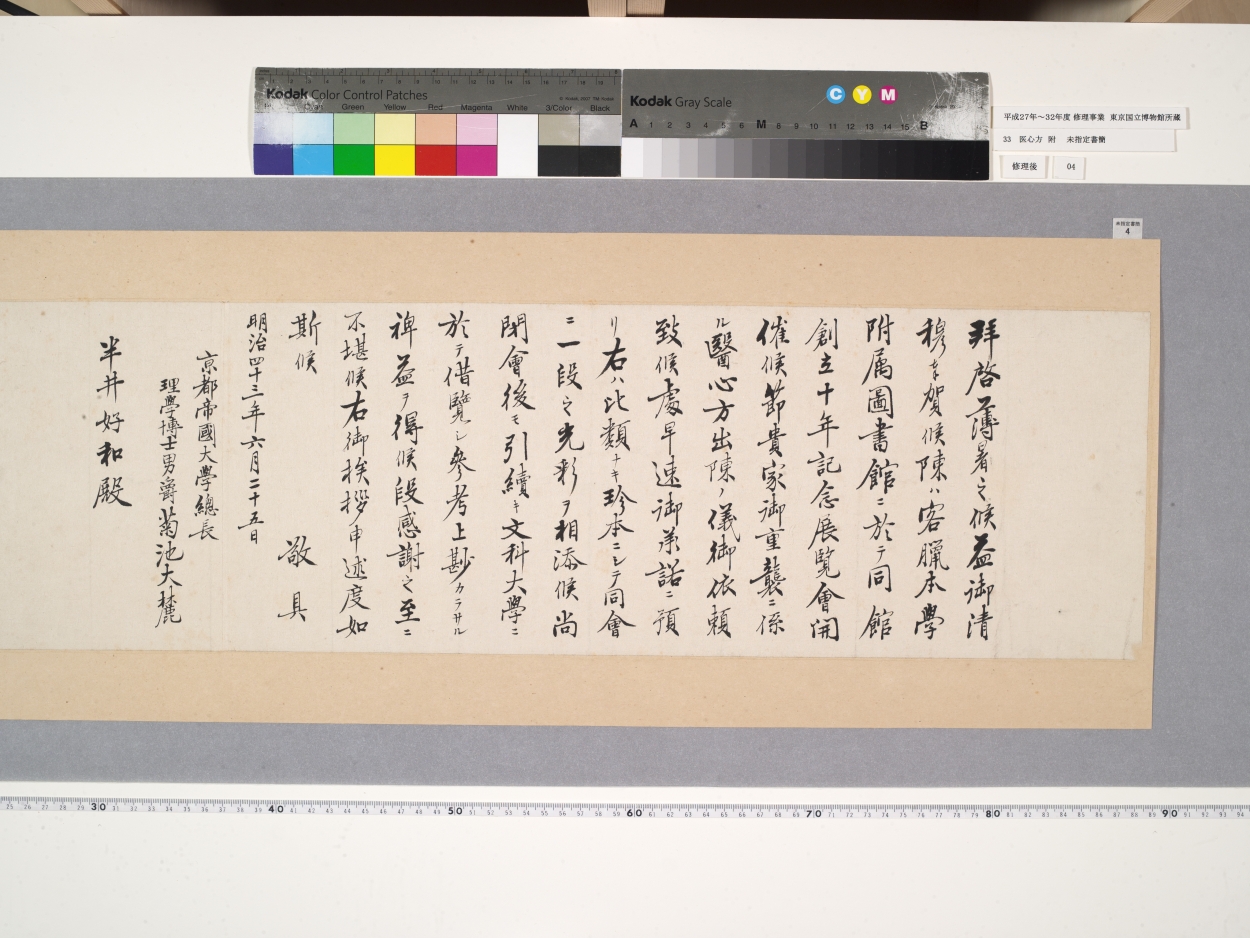 Kodak Color Control Patches
Green Yellow Red Magenta White 3/Color Black
Kodak Gray Scale
C Y M
A 1 2 3 4 5 6 M 8 9 10 11 12 13 14 15 B
平成27年～32年度 修理事業 東京国立博物館所蔵
33 医心方 附 未指定書簡
修理後 04
未指定書簡
4
拜啓薄暑之候益御清
穆奉賀候陳ハ客臘本學
附属圖書館ニ於テ同館
創立十年記念展覧會開
催候節貴家御重襲ニ係
ル醫心方出陳ノ儀御依頼
致候處早速御承諾ニ預
リ右ハ比類ナキ珍本ニシテ同會
ニ一段之光彩ヲ相添候尚
閉會後モ引續キ文科大學ニ
於テ借覽シ參考上尠カラサル
裨益ヲ得候段感謝之至ニ
不堪候右御挨拶申述度如
斯候 敬具
明治四十三年六月二十五日
京都帝國大學總長
理學博士男爵菊池大麓
半井好和殿
30 40 50 60 70 80 90